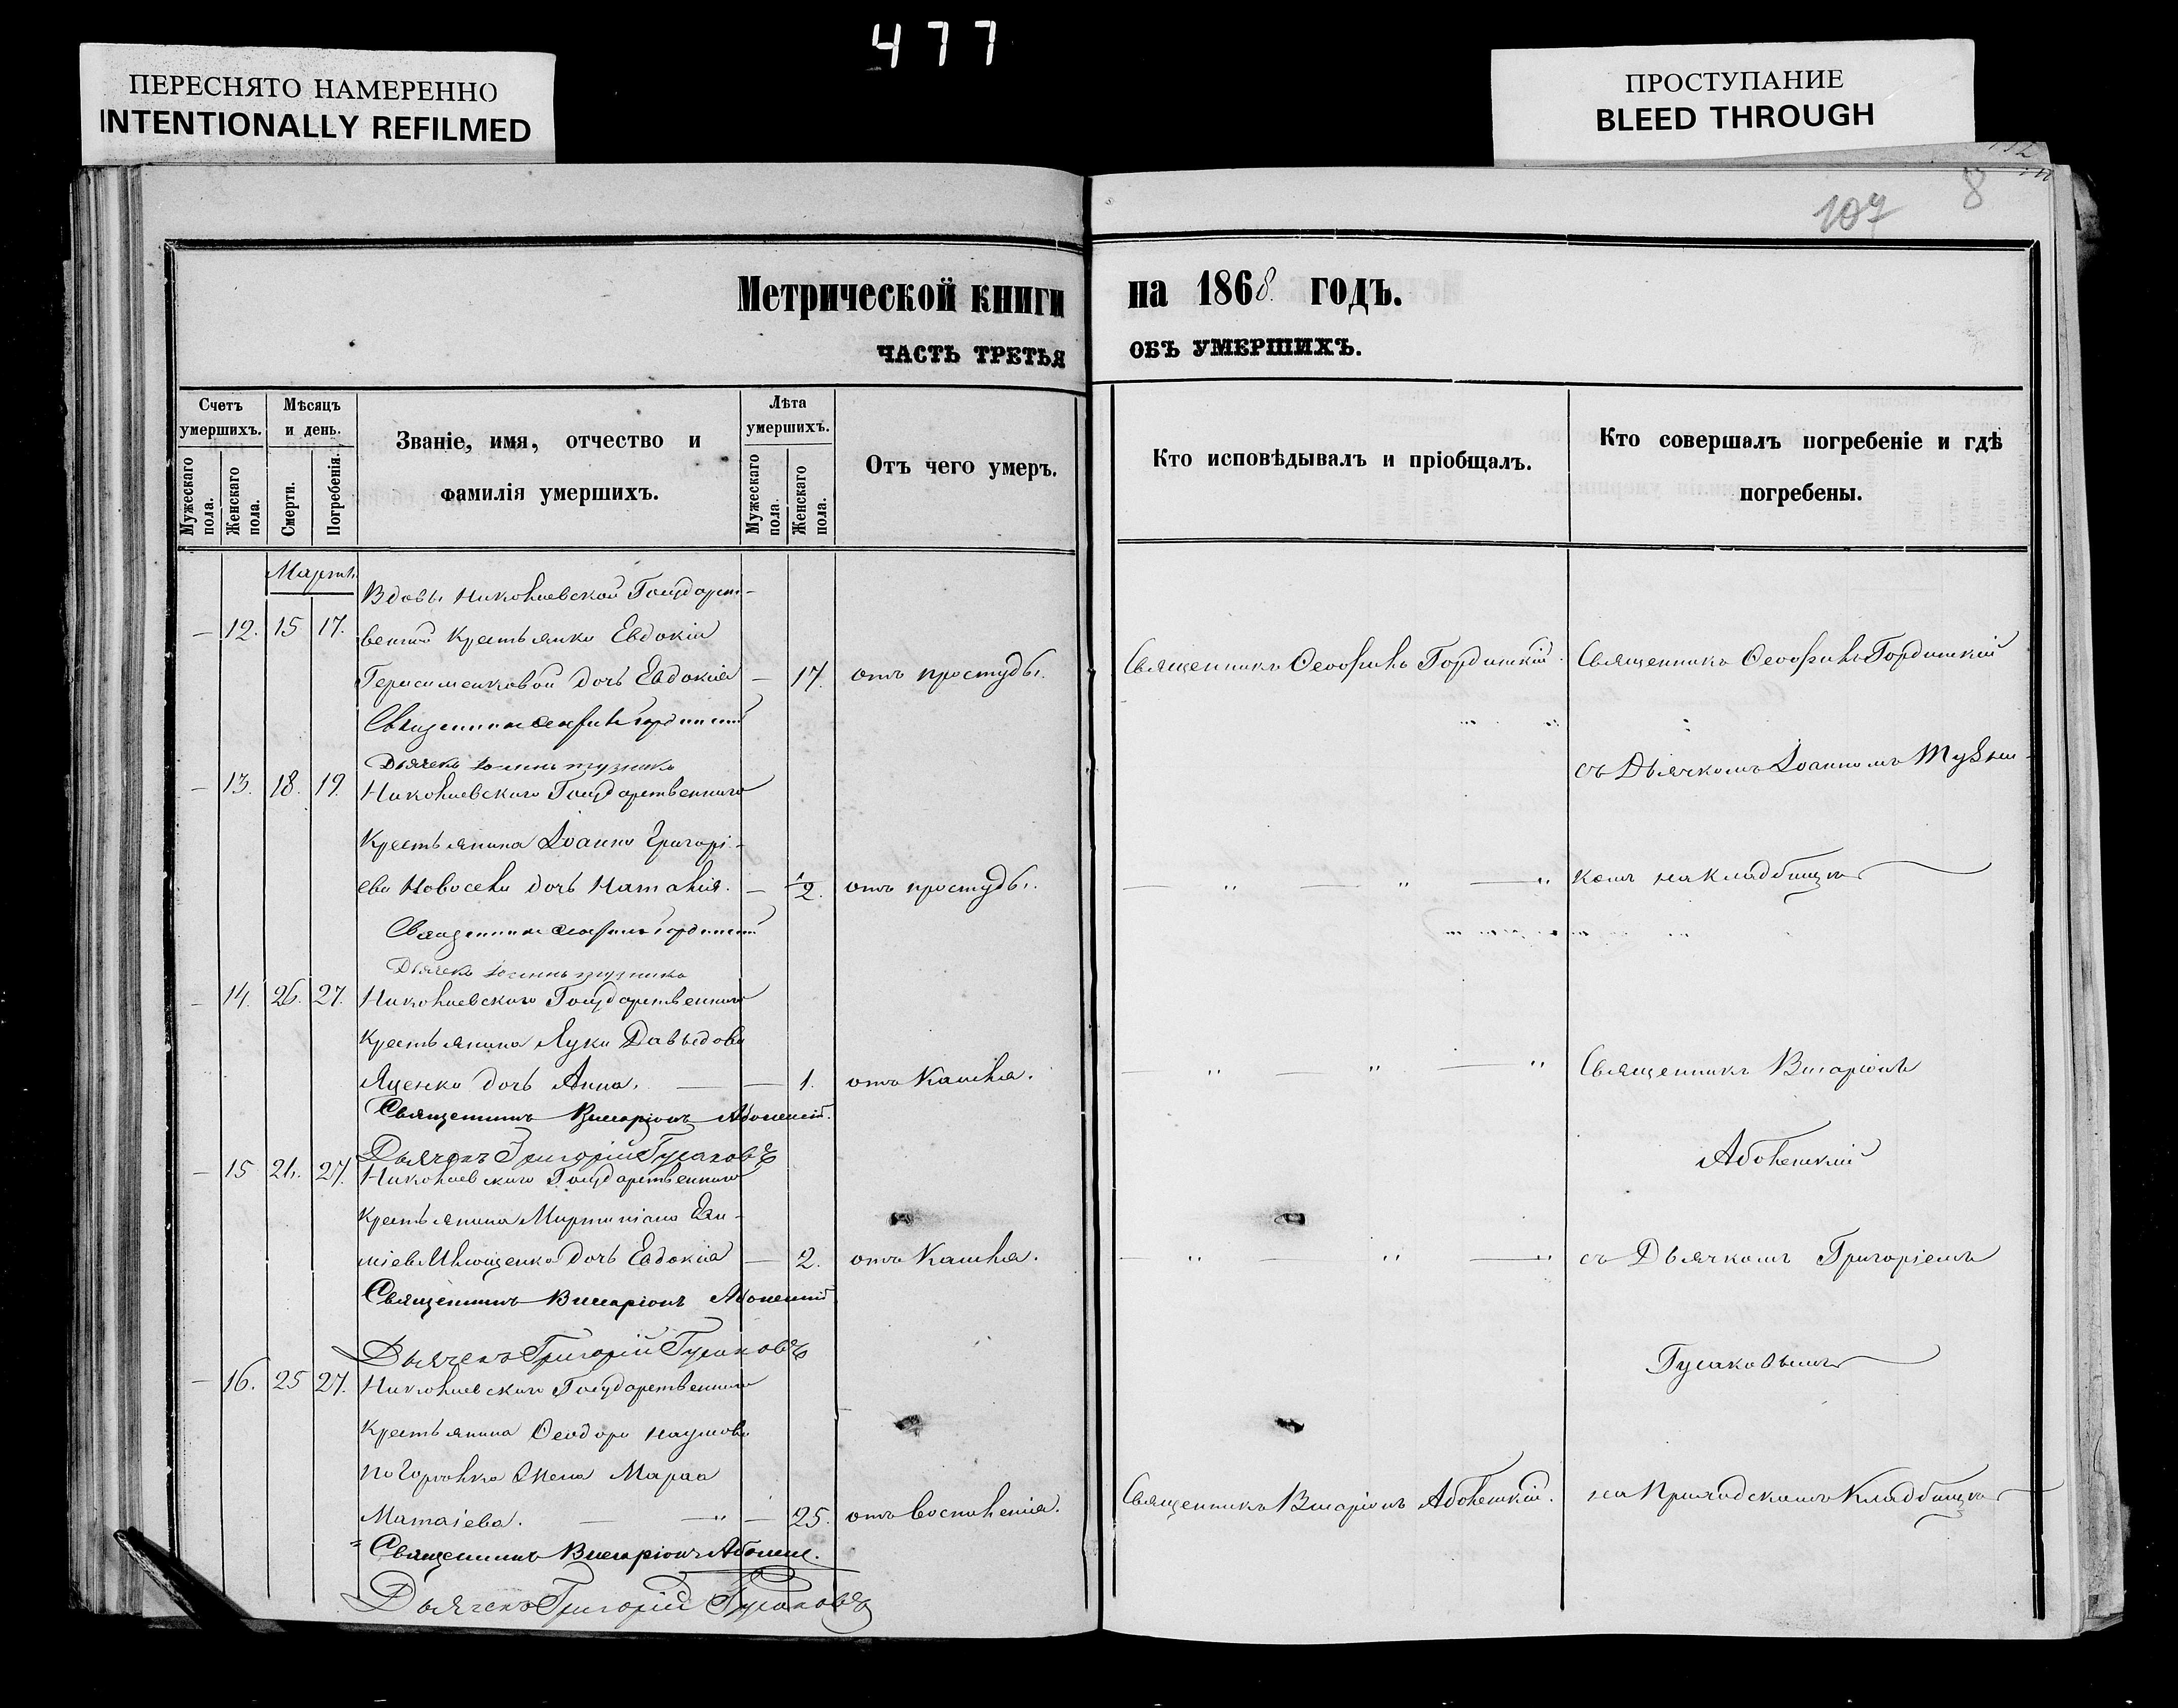 477
ПЕРЕСНЯТО НАМЕРЕННО
INTENTIONALLY REFILMED
ПРОСТУПАНИЕ
BLEED THROUGH
107 8
Метрической книги на 1868. годъ.
ЧАСТЬ ТРЕТЬЯ ОБЪ УМЕРШИХЪ.
Счетъ умершихъ.
Мужескаго пола.
Женскаго пола.
Мѣсяцъ и день.
Смерти.
Погребенія.
Званіе, имя, отчество и
фамилія умершихъ.
Лѣта умершихъ.
Мужескаго пола.
Женскаго пола.
Отъ чего умеръ.
Кто исповѣдывалъ и пріобщалъ.
Кто совершалъ погребеніе и гдѣ
погребены.
Мартъ
Вдовы Николаевской Государст-
— 12. 15 17. венной Крестьянки Евдокіи
Герасименковой дочь Евдокія — 17. отъ простуды. Священникъ Ѳеофилъ Гординскій. Священникъ Ѳеофилъ Гординскій
Священникъ Ѳеофилъ Гординскій
Дьячекъ Іоаннъ
съ Дьячкомъ Іоанномъ
— 13. 18. 19. Николаевскаго Государственнаго
Крестьянина Іоанна Григорі-
ева Новосела дочь Наталія. — 1/2. отъ простуды. — " — " — " комъ на Кладбищѣ
Священникъ Ѳеофилъ Гординскій
Дьячекъ Іоаннъ
— 14. 26. 27. Николаевскаго Государственнаго
Крестьянина Луки Давыдова
Яценко дочь Анна. — — 1. отъ Кашля. — " — " — " Священникъ Висаріонъ
Священникъ Висаріонъ
Дьячекъ Григорій Гусаковъ
— 15 26. 27. Николаевскаго Государственнаго
Крестьянина Мартиніана Евѳи-
міева Илющенко дочь Евдокія — 2. отъ Кашля. — " — " — " съ Дьячкомъ Григоріемъ
Священникъ Висаріонъ
Дьячекъ Григорій Гусаковъ
Гусаковымъ
— 16. 25 27. Николаевскаго Государственнаго
Крестьянина Ѳеодора Наумова
жена Марѳа
Матвіева. — — " — 25. отъ воспаленія. Священникъ Висаріонъ на Приходскомъ Кладбищѣ
Священникъ Висаріонъ
Дьячекъ Григорій Гусаковъ